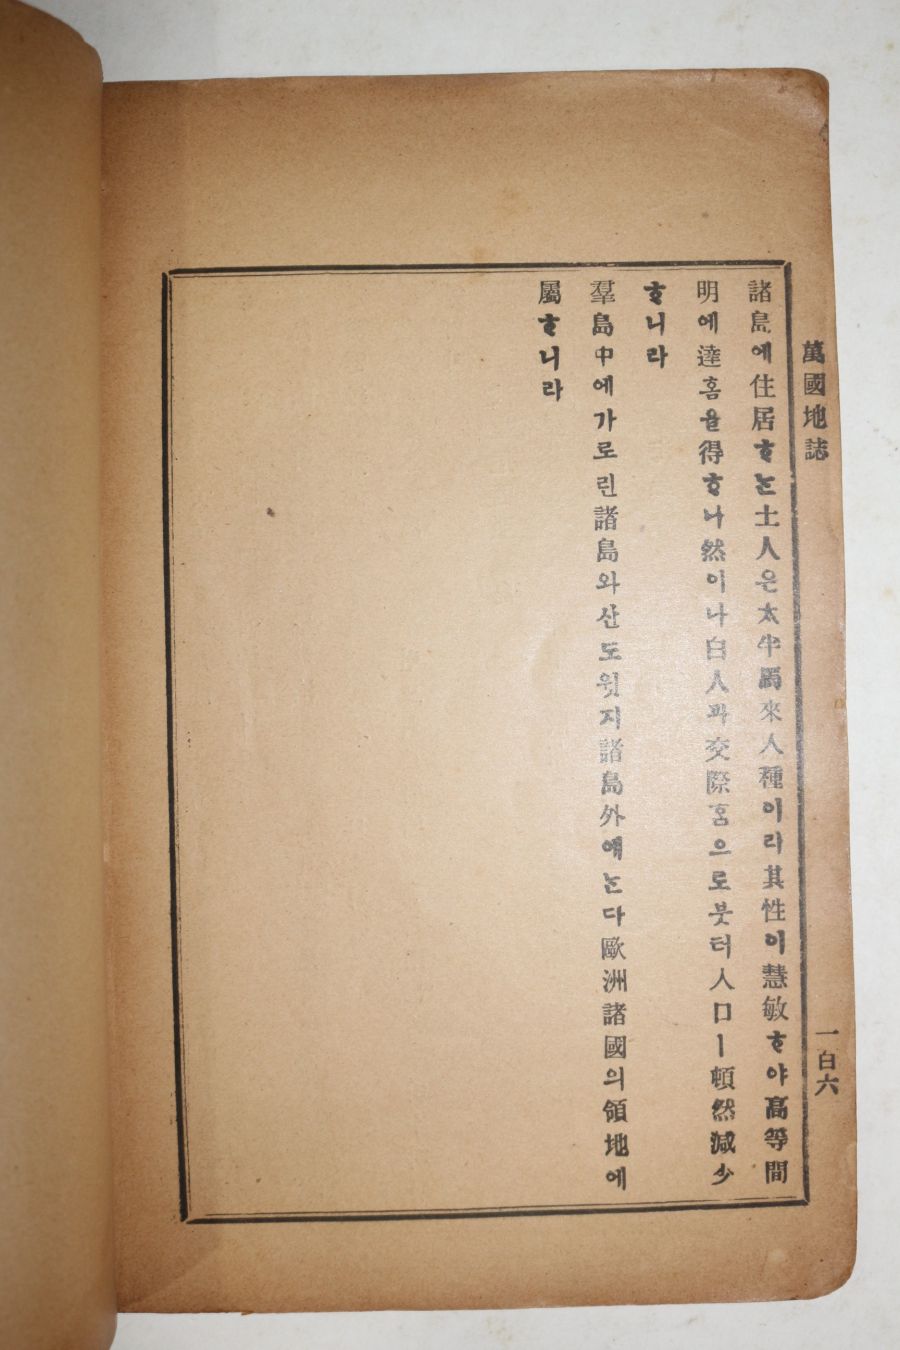 萬國地誌
諸島에住居ᄒᆞᄂᆞᆫ土人은太半馬來人種이라其性이慧敏ᄒᆞ야高等間
明에達홈을得ᄒᆞ나然이나白人과交際홈으로붓터人口ㅣ頓然減少
ᄒᆞ니라
羣島中에가로린諸島와산도윗지諸島外에ᄂᆞᆫ다歐洲諸國의領地에
屬ᄒᆞ니라
一百六